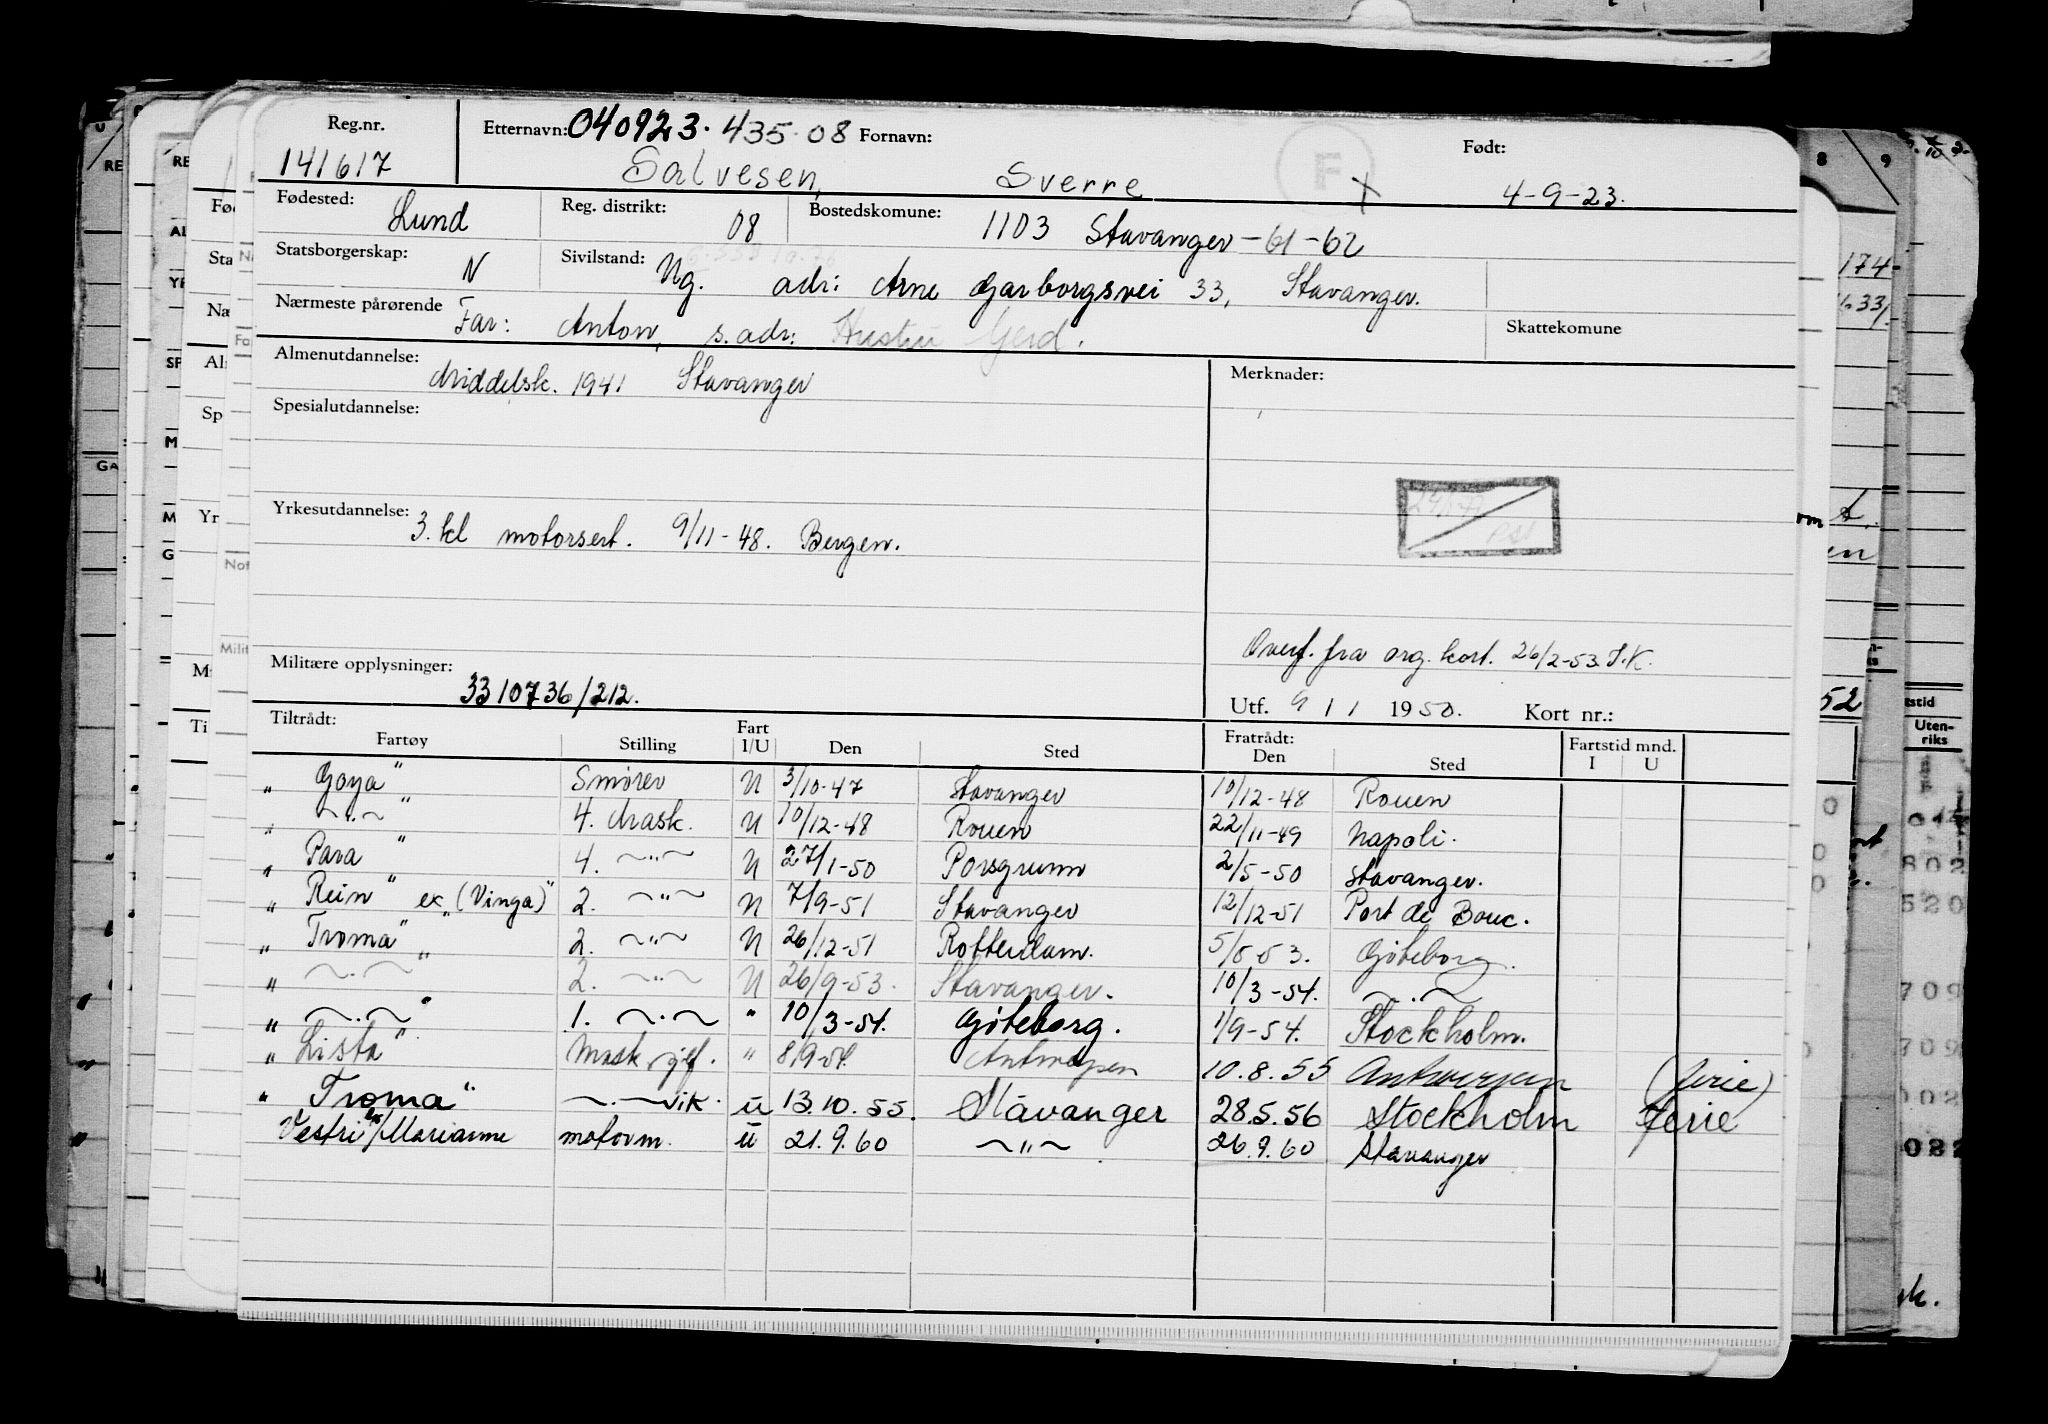 Reg.nr. Etternavn: 040923. 435.08 Fornavn: F Født:
141617 Salvesen, Sverre x 4-9-23.
Fødested: Lund Reg. distrikt: 08 Bostedskomune: 1103 Stavanger -61-62
Statsborgerskap: N Sivilstand: Ug. adr: Arne Garborgsvei 33, Stavanger.
Nærmeste pårørende Far: Anton, s. adr: Hustru Gerd. Skattekomune
Almenutdannelse: Middelsk. 1941 Stavanger Merknader:
Spesialutdannelse:
Yrkesutdannelse: 3. kl motorsert. 9/11-48. Bergen.
Overf. fra org. kort. 26/2-53 J.K.
Militære opplysninger: 3310736/212.
Utf. 9 / 1 1950. Kort nr.:
Tiltrådt: Fratrådt: Fartstid mnd.
Fartøy Stilling Fart I/U Den Sted Den Sted I U
" Goya" Smører U 3/10-47 Stavanger 10/12-48 Rouen
" ~..~ " 4. Mask. U 10/12-48 Rouen 22/11-49 Napoli.
" Para " 4. ~"~ U 27/1-50 Porsgrunn 2/5-50 Stavanger.
" Rein" ex (Vinga)" 2. ~"~ U 7/9-51 Stavanger 12/12-51 Port de Bouc.
" Tromа" 2. ~"~ U 26/12-51 Rotterdam. 5/5-53. Göteborg.
" ~..~ " 2. ~"~ U 26/9-53. Stavanger. 10/3-54. ~..~
" ~..~ " 1. ~..~ " 10/3-54. Göteborg. 1/9-54. Stockholm.
" Lista" Mask sjef. " 8/9-54. Antwerpen 10.8.55 Antwerpen (ferie)
" Troma" ~.~vik. U 13.10.55. Stavanger 28.5.56 Stockholm Ferie
Vestri ex/Marianne motorm. U 21.9.60 ~"~ 26.9.60 Stavanger